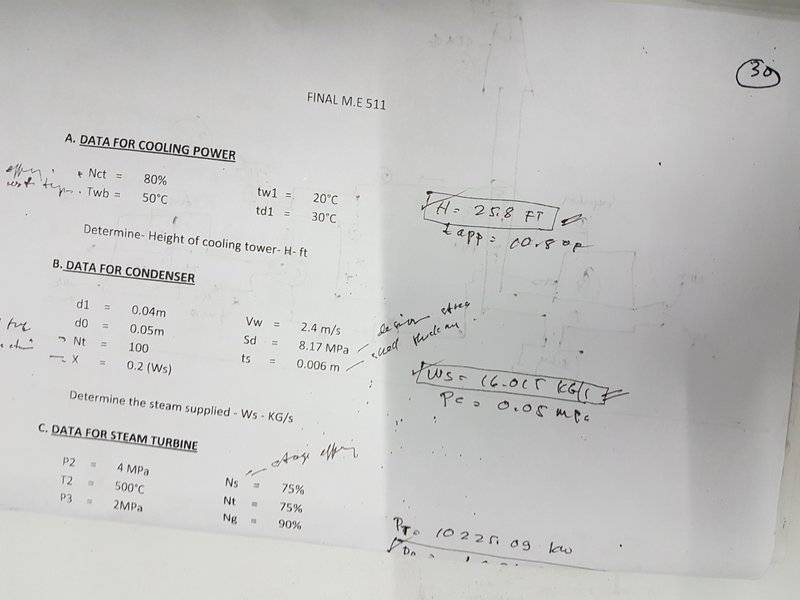 30
FINAL M.E 511
A. DATA FOR COOLING POWER
Nct = 80%
Twb = 50°C
tw1 = 20°C
td1 = 30°C
Determine- Height of cooling tower- H- ft
H = 25.8 FT
t app = 10.8 °F
B. DATA FOR CONDENSER
d1 = 0.04m
d0 = 0.05m
Nt = 100
X = 0.2 (Ws)
Vw = 2.4 m/s
Sd = 8.17 MPa
ts = 0.006 m
design stress
Determine the steam supplied - Ws - KG/s
Ws = 16.015 KG/s
Pc = 0.05 mpa
C. DATA FOR STEAM TURBINE
stage effy
P2 = 4 MPa
T2 = 500°C
P3 = 2MPa
Ns = 75%
Nt = 75%
Ng = 90%
PT = 10225.09 kw